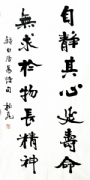 自静其心延壽命
無求於物長精神
録白居易詩句